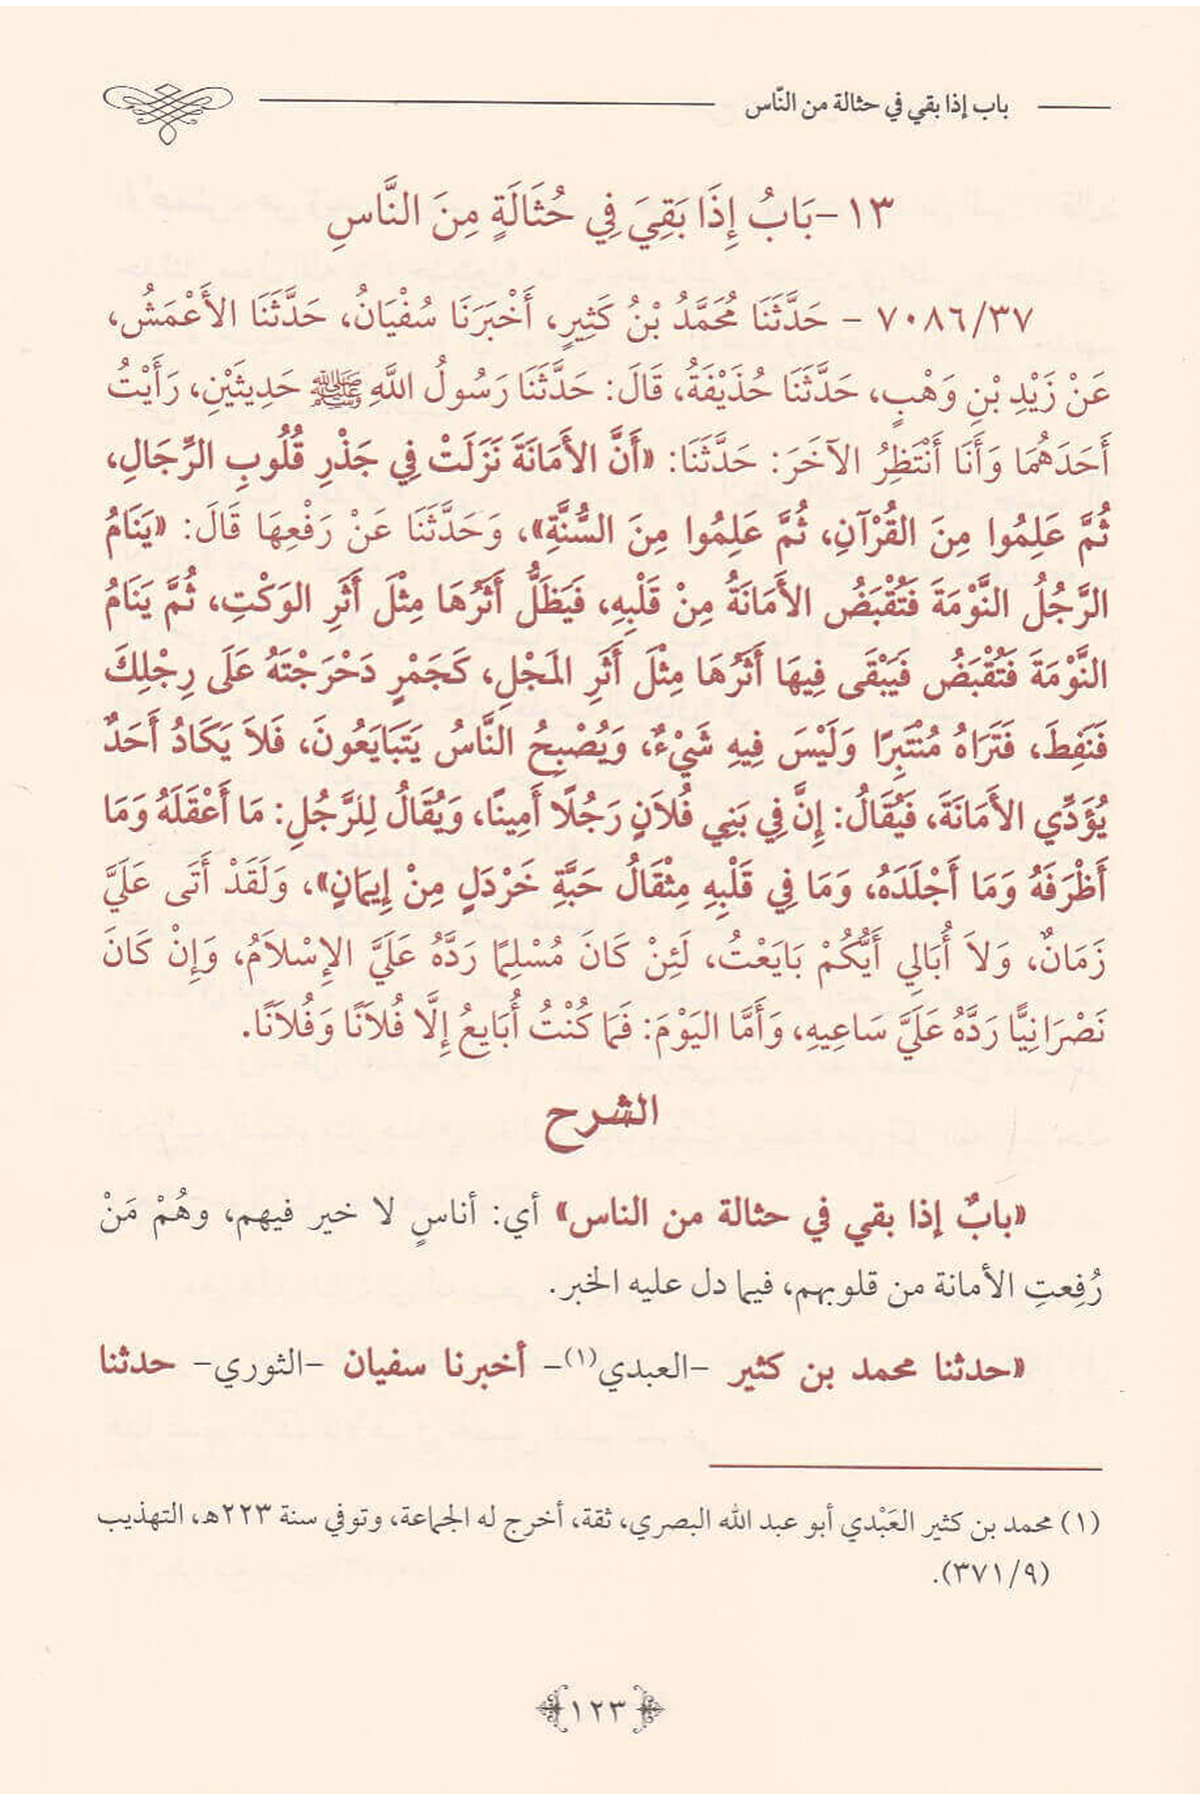 باب إذا بقي في حثالة من النّاس
١٣- بَابُ إِذَا بَقِيَ فِي حُثَالَةٍ مِنَ النَّاسِ
٧٠٨٦/٣٧ - حَدَّثَنَا مُحَمَّدُ بْنُ كَثِيرٍ، أَخْبَرَنَا سُفْيَانُ، حَدَّثَنَا الأَعْمَشُ،
عَنْ زَيْدِ بْنِ وَهْبٍ، حَدَّثَنَا حُذَيْفَةُ، قَالَ: حَدَّثَنَا رَسُولُ اللَّهِ ﷺ حَدِيثَيْنِ، رَأَيْتُ
أَحَدَهُمَا وَأَنَا أَنْتَظِرُ الآخَرَ: حَدَّثَنَا: «أَنَّ الأَمَانَةَ نَزَلَتْ فِي جَذْرِ قُلُوبِ الرِّجَالِ،
ثُمَّ عَلِمُوا مِنَ القُرْآنِ، ثُمَّ عَلِمُوا مِنَ السُّنَّةِ»، وَحَدَّثَنَا عَنْ رَفْعِهَا قَالَ: «يَنَامُ
الرَّجُلُ النَّوْمَةَ فَتُقْبَضُ الأَمَانَةُ مِنْ قَلْبِهِ، فَيَظَلُّ أَثَرُهَا مِثْلَ أَثَرِ الوَكْتِ، ثُمَّ يَنَامُ
النَّوْمَةَ فَتُقْبَضُ فَيَبْقَى فِيهَا أَثَرُهَا مِثْلَ أَثَرِ المَجْلِ، كَجَمْرٍ دَحْرَجْتَهُ عَلَى رِجْلِكَ
فَنَفِطَ، فَتَرَاهُ مُنْتَبِرًا وَلَيْسَ فِيهِ شَيْءٌ، وَيُصْبِحُ النَّاسُ يَتَبَايَعُونَ، فَلاَ يَكَادُ أَحَدٌ
يُؤَدِّي الأَمَانَةَ، فَيُقَالُ: إِنَّ فِي بَنِي فُلاَنٍ رَجُلًا أَمِينًا، وَيُقَالُ لِلرَّجُلِ: مَا أَعْقَلَهُ وَمَا
أَظْرَفَهُ وَمَا أَجْلَدَهُ، وَمَا فِي قَلْبِهِ مِثْقَالُ حَبَّةِ خَرْدَلٍ مِنْ إِيمَانٍ»، وَلَقَدْ أَتَى عَلَيَّ
زَمَانٌ، وَلاَ أُبَالِي أَيُّكُمْ بَايَعْتُ، لَئِنْ كَانَ مُسْلِمًا رَدَّهُ عَلَيَّ الإِسْلاَمُ، وَإِنْ كَانَ
نَصْرَانِيًّا رَدَّهُ عَلَيَّ سَاعِيهِ، وَأَمَّا اليَوْمَ: فَمَا كُنْتُ أُبَايِعُ إِلَّا فُلاَنًا وَفُلاَنًا.
الشرح
«بابٌ إذا بقي في حثالة من الناس» أي: أناسٍ لا خير فيهم، وهُمْ مَنْ
رُفِعتِ الأمانة من قلوبهم، فيما دل عليه الخبر.
«حدثنا محمد بن كثير -العبدي(١)- أخبرنا سفيان -الثوري- حدثنا
(١) محمد بن كثير العَبْدي أبو عبد الله البصري، ثقة، أخرج له الجماعة، وتوفي سنة ٢٢٣هـ، التهذيب
(٣٧١/٩).
١٢٣